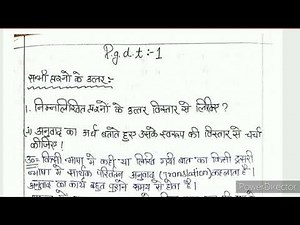 P.g.d.t :- 1
सभी प्रश्नो के उत्तर :-
1. निम्नलिखित प्रश्नो के उत्तर विस्तार से लिखिए ?
(i) अनुवाद का अर्थ बताते हुए उसके स्वरूप की विस्तार से चर्चा
कीजिए !
उ०= किसी भाषा में कही या लिखि गयी बात का किसी दूसरी
भाषा में सार्थक परिवर्तन अनुवाद (Translation) कहलाता है।
अनुवाद का कार्य बहुत पुराने समय से होता है।
PowerDirector